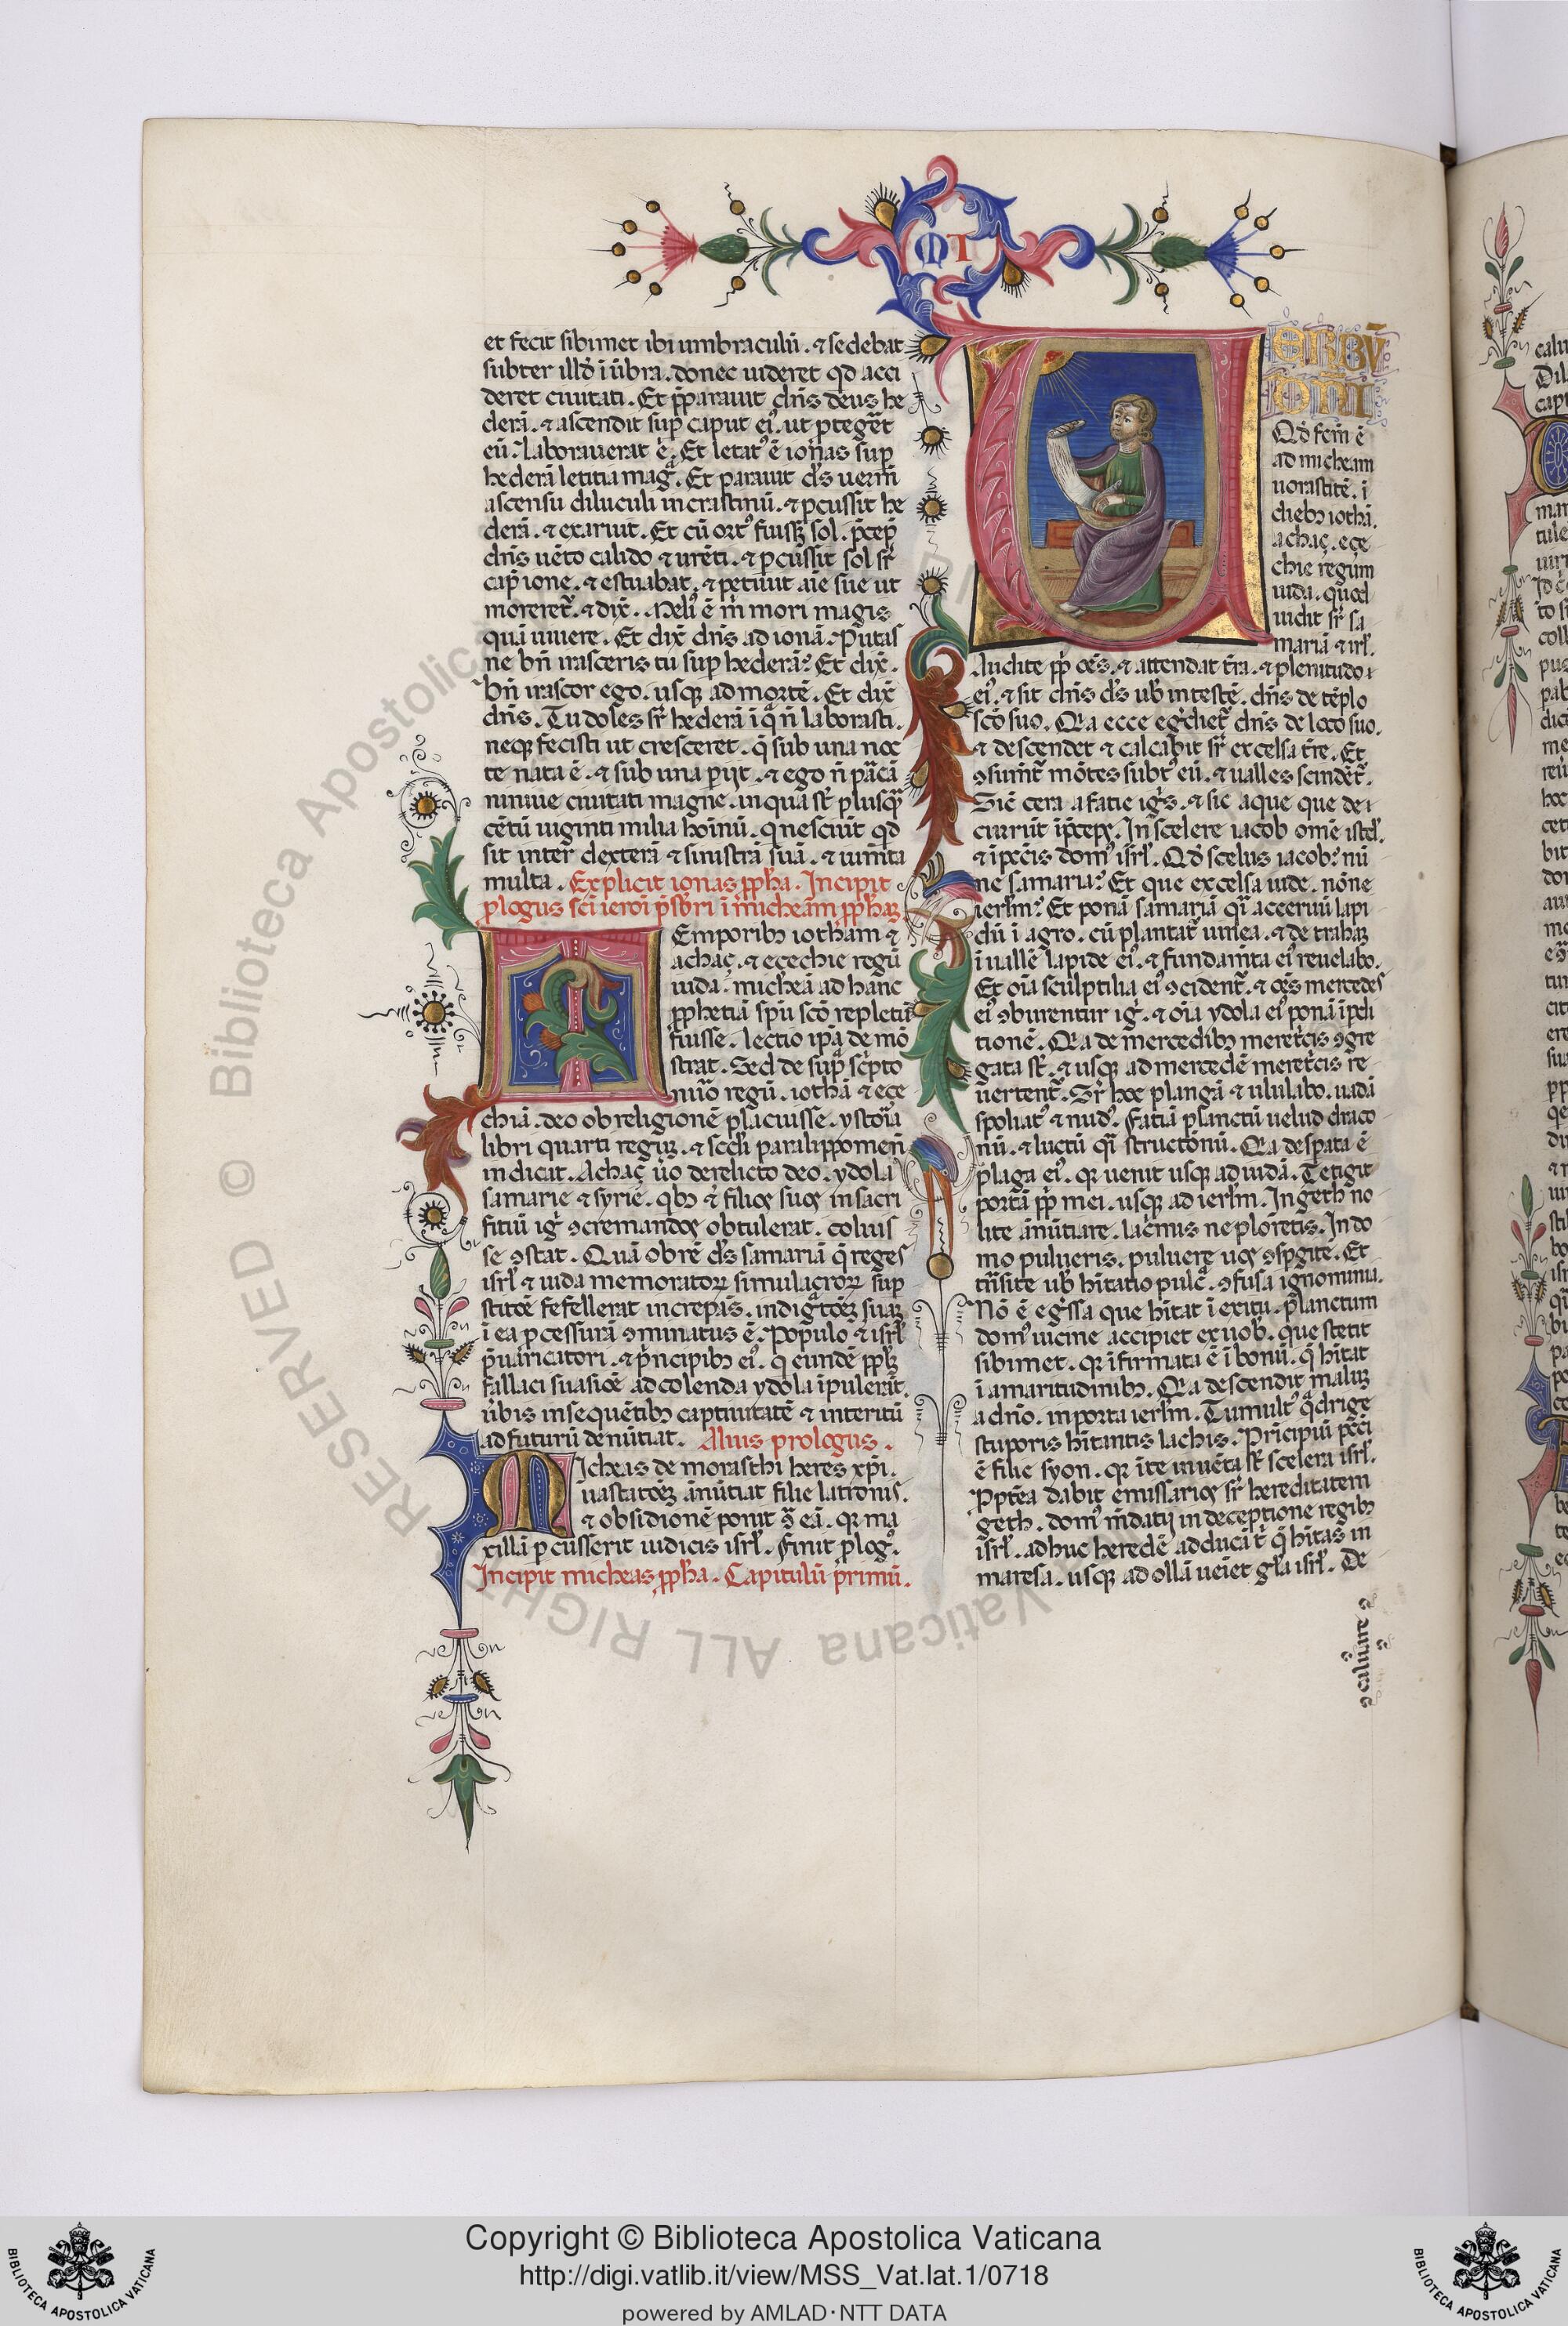 MI
et fecit sibimet ibi umbraculū. et sedebat
subter illḋ ī ūbra. donec uideret qḋ acci
deret ciuitati. Et p̄parauit dn̄s deus he
derā. et ascendit sup̱ caput ei᷒. ut p̱teget᷑
eū. laborauerat .n. Et letat᷒ ē ionas sup̱
hederā letitia magͣ. Et parauit ds̄ uermē
ascensu diluculi in crastinū. et p̱cussit he
derā. et exaruit. Et cū ort᷒ fuiss& sol. p̄cep̱
dn̄s uēto calido et urēti. et p̱cussit sol sr̄
cap̱ ione. et estuabat. et petiuit aīe sue ut
moreret᷑. et dix̄. Meli᷒ ē m̄ mori magis
quā uiuere. Et dix̄ dn̄s ad ionā. Putas
ne bn̄ irasceris tu sup̱ hederā? Et dix̄.
bn̄ irascor ego. usqꝫ ad mortē. Et dix̄
dn̄s. Tu doles sr̄ hederā ī qͣ n̄ laborasti.
neqꝫ fecisti ut cresceret. q̄ sub una noc
te nata ē. et sub una p̱ijt. et ego n̄ p̱cā
niniue ciuitati magne. in qua st̄ plusqͣ
cētū uiginti milia hoīnū. q nesciūt qḋ
sit inter dexterā et sinistrā suā. et ium̄ta
multa. Explicit ionas p̱p̱ha. Incipit
ꝓlogus scī ieroī p̄sbrī ī micheām p̱p̱haꝫ
Temporibꝫ iotham et
achaç. et eçechie regū
iuda. micheā ad hanc
ꝓphetiā spū scō repletū
fuisse. lectio ipͣa de mō
strat. Sed de sup̱ sc̄pto
nūo regū. iothā et eçe
chiā. deo ob religionē placuisse. ystoīa
libri quarti reguꝫ. et scdī paralippomen̄
indicat. Achaç ūo derelicto deo. ydola
samarie et syrie. qbꝫ et filios suos in sacri
fitiū igī ꝯcremandos obtulerat. coluis
se ꝯstat. Quā obrē ds̄ samariā q̄ reges
isrl̄ et iuda memoratoꝝ simulacroꝝ sup̱
stitōe fefellerat increpās. indigͣtōeꝫ suaꝫ
ī ea p̱cessurā ꝯminatus ē. Populo et isrl̄
p̄uaricatori. et p̄ncipibꝫ ei᷒. q eundē pp̱lꝫ
fallaci suasiōe ad colenda ydola īpulerāt.
ūbis insequētibꝫ captiuitatē et interitū
ad futurū denūtiat. Alius prologus.
Micheas de morasthi heres xp̄i.
uastatōeꝫ ānūtiat filie latronis.
et obsidionē ponit ꝯͣ eā. qꝛ ma
xillā p̱cusserit iudicis isrl̄. Finit ꝓlog᷒.
Incipit micheas p̱p̱ha. Capitulū primū.
VERBŪ
DOMĪ
Qḋ fcm̄ ē
ad micheam
morastitē. ī
diebꝫ iothā.
achaç. eçe
chie regum
iuda. quod
uidit sr̄ sa
mariā et irl̄.
Audite pp̱l̄ oēs. et attendat t̄ra. et plenitudo
ei᷒. et sit dn̄s ds̄ ub̄ in testē. dn̄s de tēplo
scō suo. Qa ecce egr̄diet᷑ dn̄s de loco suo.
et descendet et calcabit sr̄ excelsa t̄re. Et
ꝯsumēt᷑ mōtes subt᷒ eū. et ualles scindēt᷑.
Sic̄ cera a fatie igīs. et sic aque que de
currūt īp̄ceps. In scelere iacob omē istd̄.
et ī pc̄cis dom᷒ isrl̄. Qḋ scelus iacob? nū
ne samaria? Et que excelsa iude. nōne
ierl̄m? Et ponā samariā qͣi aceruū lapi
dū ī agro. cū plantat᷑ uinea. et detrahaꝫ
ī uallē lapides ei᷒. et fundam̄ta ei᷒ reuelabo.
Et oīa sculptilia ei᷒ ꝯcident᷑. et oēs mercedes
ei᷒ ꝯburentur igī. et oīa ydola ei᷒ ponā ī p̱di
tionē. Qa de mercedibꝫ meret̄cis ꝯgre
gata st̄. et usqꝫ ad mercedē meret̄cis re
uertent᷑. Sr̄ hoc plangā et ululabo. uadā
spoliat᷒ et nud᷒. Fatiā planctū uelud draco
nū. et luctū qͣi structōnū. Qa desp̱ata ē
plaga ei᷒. qꝛ uenit usqꝫ ad iudā. Tetigit
portā pp̱l̄i mei. usqꝫ ad ierl̄m. In geth no
lite ānūtiare. lac̄mis ne ploretis. In do
mo pulueris. puluere uos ꝯsp̱gite. Et
trāsite ub̄ hītatio pulcͣ. ꝯfusa ignominia.
Nō ē egr̄ssa que hītat ī exitu. planctum
dom᷒ uicine accipiet ex uob̄. que stetit
sibimet. qꝛ īfirmata ē ī bonū. q̄ hītat
ī amaritudinibꝫ. Qa descendit maluꝫ
a dn̄o. in porta ierl̄m. Tumult᷒ qͣdrige
stuporis hītantis lachis. Principiū pc̄ci
ē filie syon. qꝛ ī te inuēta st̄ scelera isrl̄.
Pp̱tēa dabit emissarios sr̄ hereditatem
geth. dom᷒ mēdatij in deceptionē regibꝫ
isrl̄. adhuc heredē adducā t̄ q̄ hītas in
maresa. usqꝫ ad ollā ueīet gl̄a isrl̄. De
caluare
Copyright © Biblioteca Apostolica Vaticana
http://digi.vatlib.it/view/MSS_Vat.lat.1/0718
powered by AMLAD·NTT DATA
BIBLIOTECA APOSTOLICA VATICANA
BIBLIOTECA APOSTOLICA VATICANA
© Biblioteca Apostolica Vaticana ALL RIGHTS RESERVED